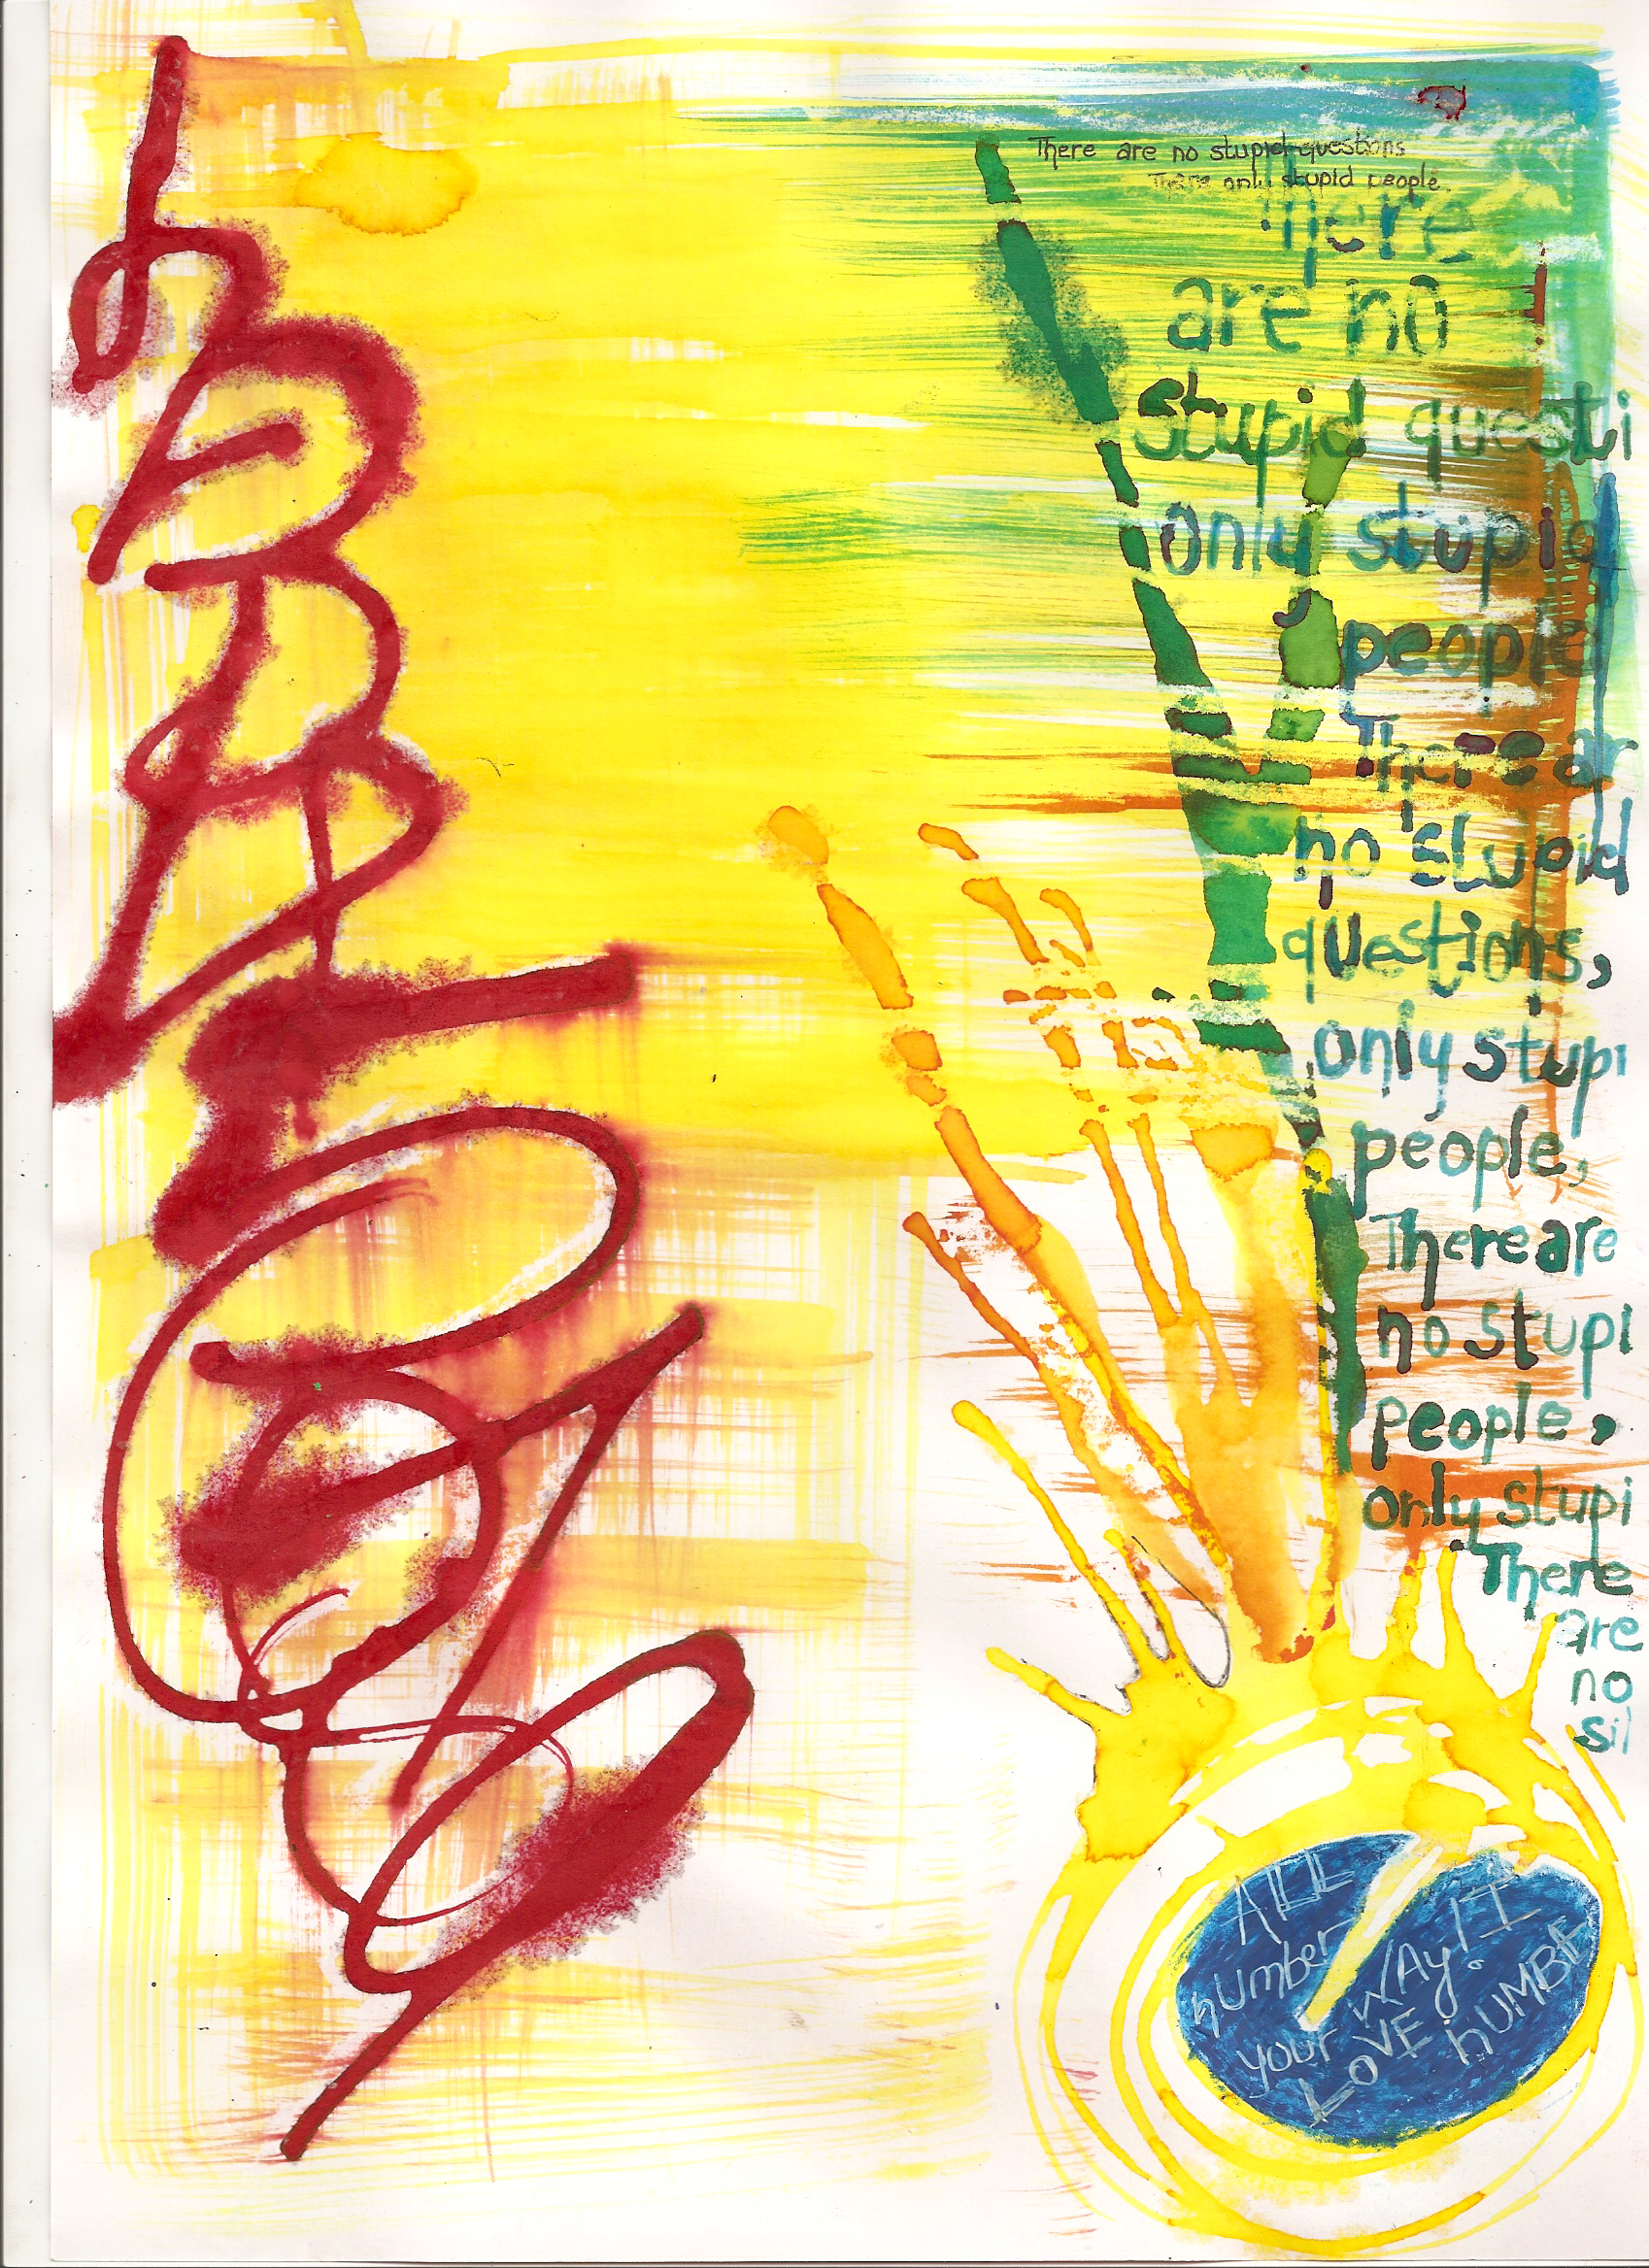 There are no stupid questions
There only stupid people.
There
are no
stupid questi
only stupid
people
There ar
no stupid
questions,
only stupi
people,
There are
no stupi
people,
only stupi
There
are
no
sil
ALL
number
your WAY IT
LOVE hUMBE